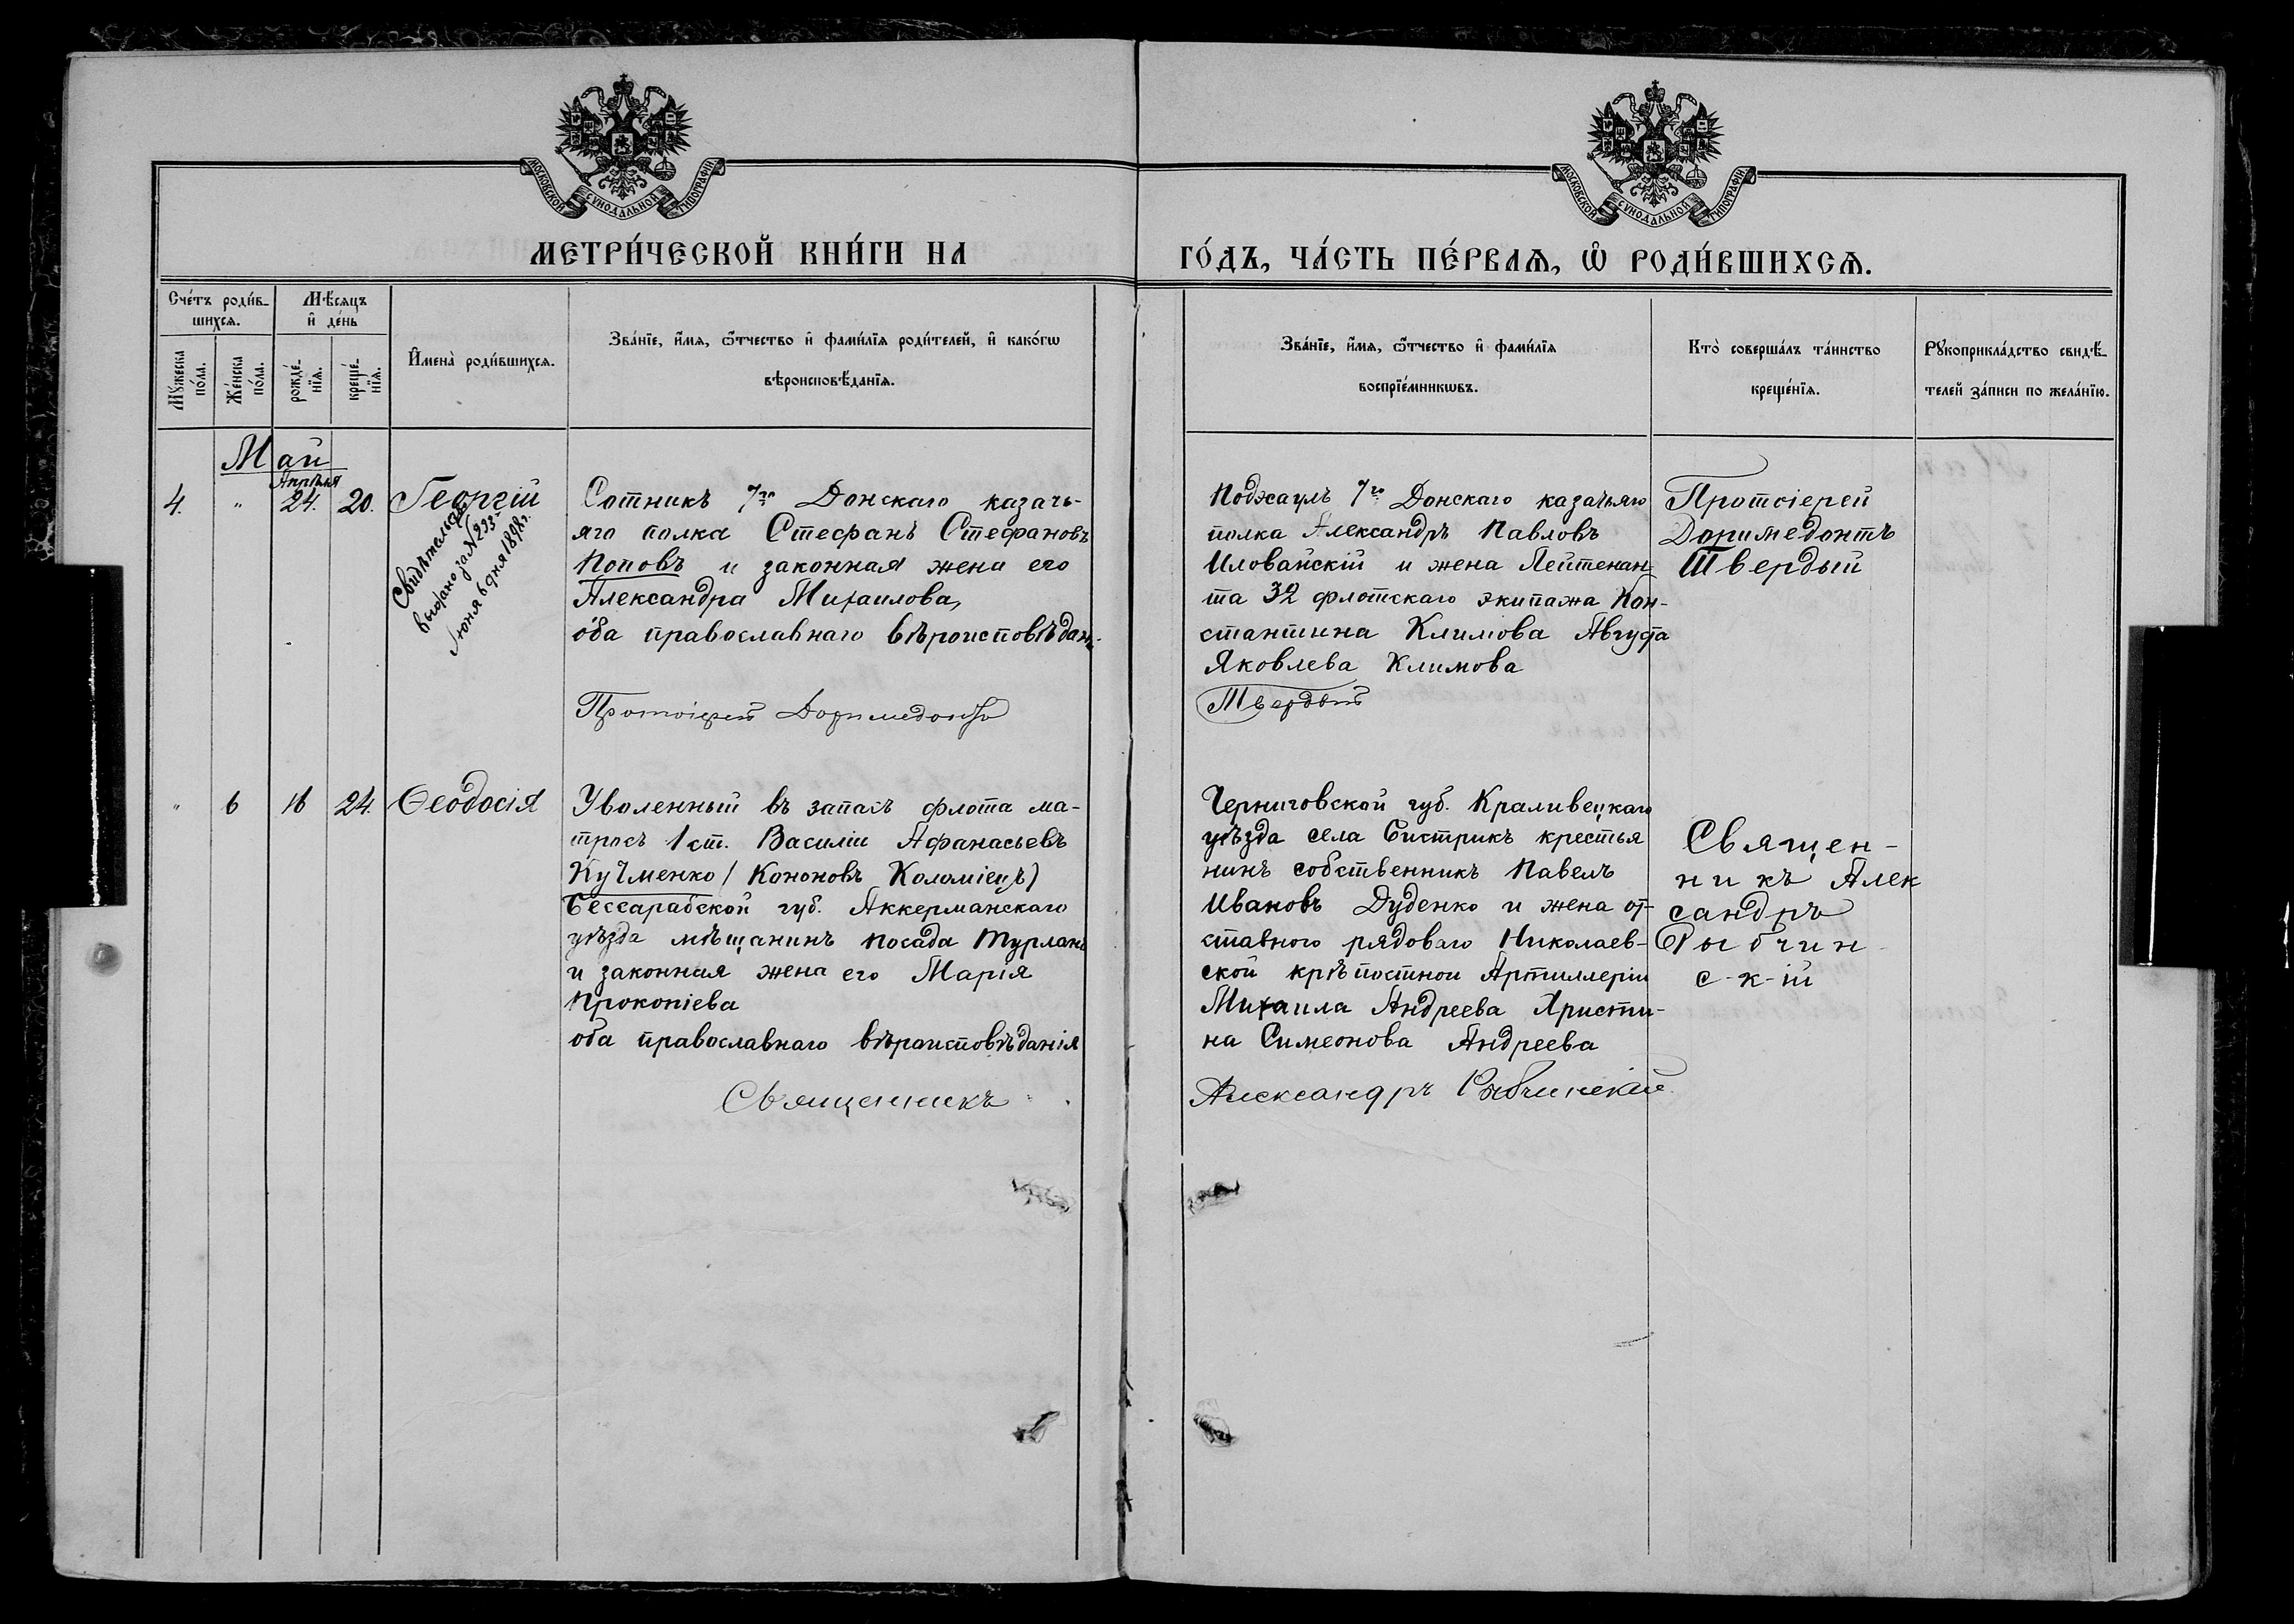 МОСКОВСКОЙ СУНОДАЛЬНОЙ ТИПОГРАФІИ
МОСКОВСКОЙ СУНОДАЛЬНОЙ ТИПОГРАФІИ
МЕТРИ́ЧЕСКОЙ КНИ́ГИ НА
ГО́ДЪ, ЧА́СТЬ ПЕ́РВАѦ, Ѡ҆ РОДИ́ВШИХСѦ.
Сче́тъ роди́в-
шихсѧ.
Мѣ́сѧцъ
и҆ де́нь
Мꙋжеска
по́ла.
Же́нска
по́ла.
рожде́-
нїѧ.
креще́-
нїѧ.
И҆мена̀ роди́вшихсѧ.
Зва́нїе, и҆́мѧ, ѻ҆́тчество и҆ фами́лїѧ роди́телей, и҆ како́гѡ
вѣроисповѣ́данїѧ.
Зва́нїе, и҆́мѧ, ѻ҆́тчество и҆ фами́лїѧ
воспрїе́мникѡвъ.
Кто̀ соверша́лъ та́инство
креще́нїѧ.
Рꙋкоприкла́дство свидѣ́-
телей за́писи по жела́нїю.
Май
Апрѣля
4. " 24. 20. Георгій
Свидѣтельство
выдано за N 293
Іюня 6 дня 1898 г.
Сотникъ 7го Донскаго казачь-
яго полка Стефанъ Стефановъ
Поповъ и законная жена его
Александра Михаилова,
оба православнаго вѣроисповѣдан.
Протоіерей Доримедонтъ
Подэсаулъ 7го Донскаго казачьяго
полка Александръ Павловъ
Иловайскій и жена Лейтенан
та 32 флотскаго экипажа Кон-
стантина Климова Августа
Яковлева Климова
Твердый
Протоіерей
Доримедонтъ
Твердый
" 6 16 24. Ѳеодосія
Уволенный въ запасъ флота ма-
тросъ 1 ст. Василій Афанасьевъ
Кучменко (Кононовъ Коломіецъ)
Бессарабской губ. Аккерманскаго
уѣзда мѣщанинъ посада Турланъ
и законная жена его Марія
Прокопіева
оба православнаго вѣроисповѣданія
Священникъ
Черниговской губ. Краливецкаго
уѣзда села Бистрикъ крестья
нинъ собственникъ Павелъ
Ивановъ Дуденко и жена от-
ставного рядоваго Николаев-
ской крѣпостной Артиллеріи
Михаила Андреева Христи-
на Симеонова Андреева
Александръ Рыбчинскій
Священ-
никъ Алек
сандръ
Рыбчин-
с-к-ій